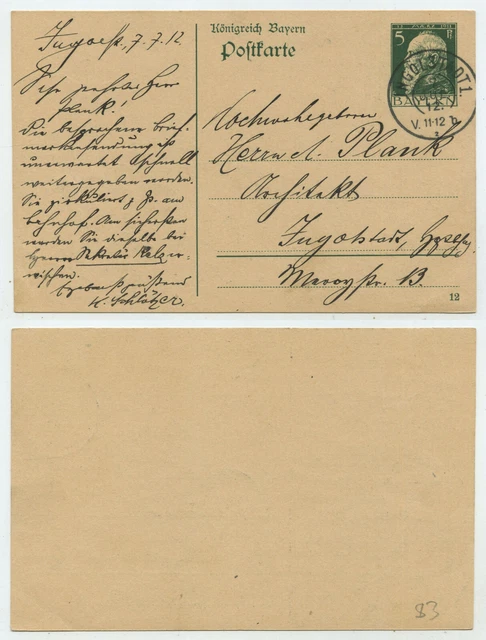 Ingolst., 7.7.12.
Sehr geehrter Herr
Plank!
Die besprochene Brief-
markensendung ist
unerwartet schnell
weitergegeben worden.
Sie zirkuliert z. Zt. am
Bahnhof. Am sichersten
werden Sie dieselbe bei
Herrn Sekretär er-
wischen.
Ergebenst grüßend
K. Schlötzer.
Königreich Bayern
Postkarte
12. MÄRZ 1911
5 Pf
BAYERN
INGOLSTADT 1.
12.
V. 11-12
Hochwohlgeboren
Herrn A. Plank
Architekt
Ingolstadt,
13.
12
83